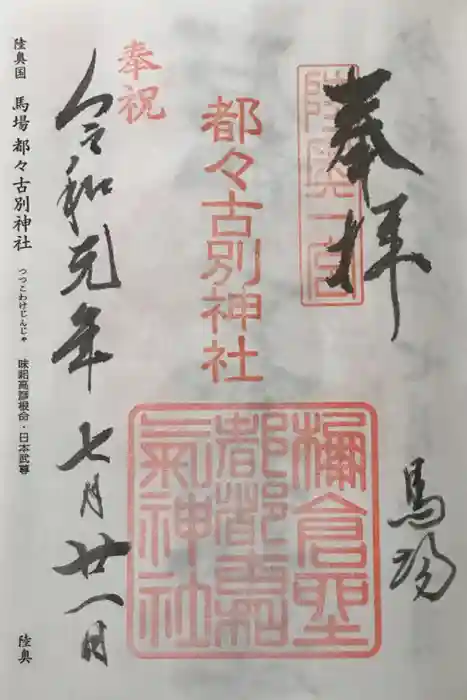 奉拝
陸奥一宮
馬場
都々古別神社
奉祝
令和元年七月廿一日
陸奥国 馬場都々古別神社 つつこわけじんじゃ 味耜高彦根命・日本武尊 陸奥